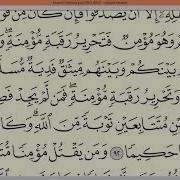 إِلَّآ أَن يَصَّدَّقُوا۟ ۚ فَإِن كَانَ مِن قَوْ
وَهُوَ مُؤْمِنٌ فَتَحْرِيرُ رَقَبَةٍ مُّؤْمِنَةٍ ۖ وَ
بَيْنَكُمْ وَبَيْنَهُم مِّيثَٰقٌ فَدِيَةٌ مُّسَلَّ
وَتَحْرِيرُ رَقَبَةٍ مُّؤْمِنَةٍ ۖ فَمَن لَّمْ يَجِدْ فَصِ
نِ مُتَتَابِعَيْنِ تَوْبَةً مِّنَ ٱللَّهِ ۗ وَكَا
حَكِيمًا ﴿٩٢﴾ وَمَن يَقْتُلْ مُؤْمِنًا